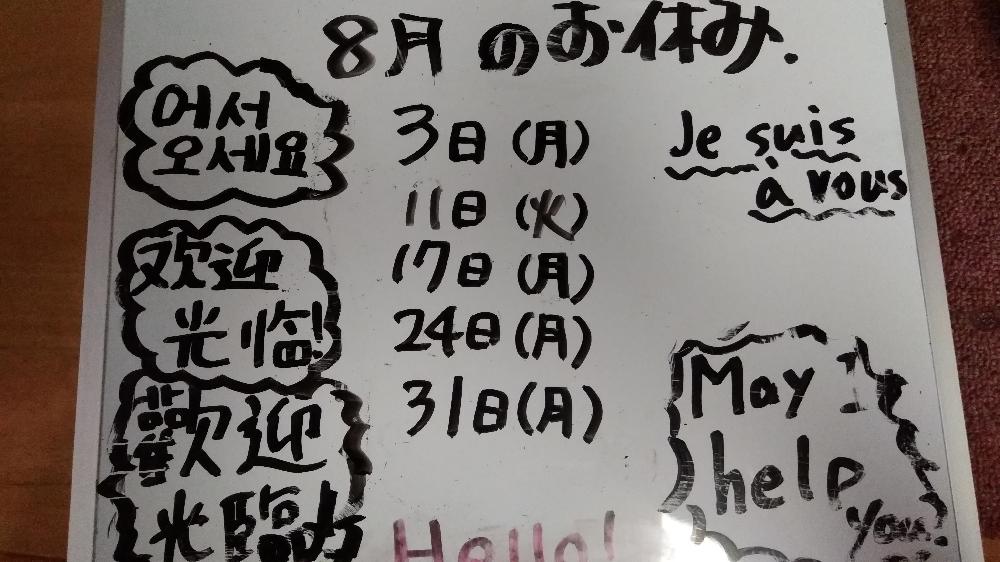 8月のお休み.
어서
오세요
3日(月)
11日(火)
17日(月)
24日(月)
31日(月)
Je suis
à vous
欢迎
光临!
歡迎
光臨
May I
help
you!
Hello!